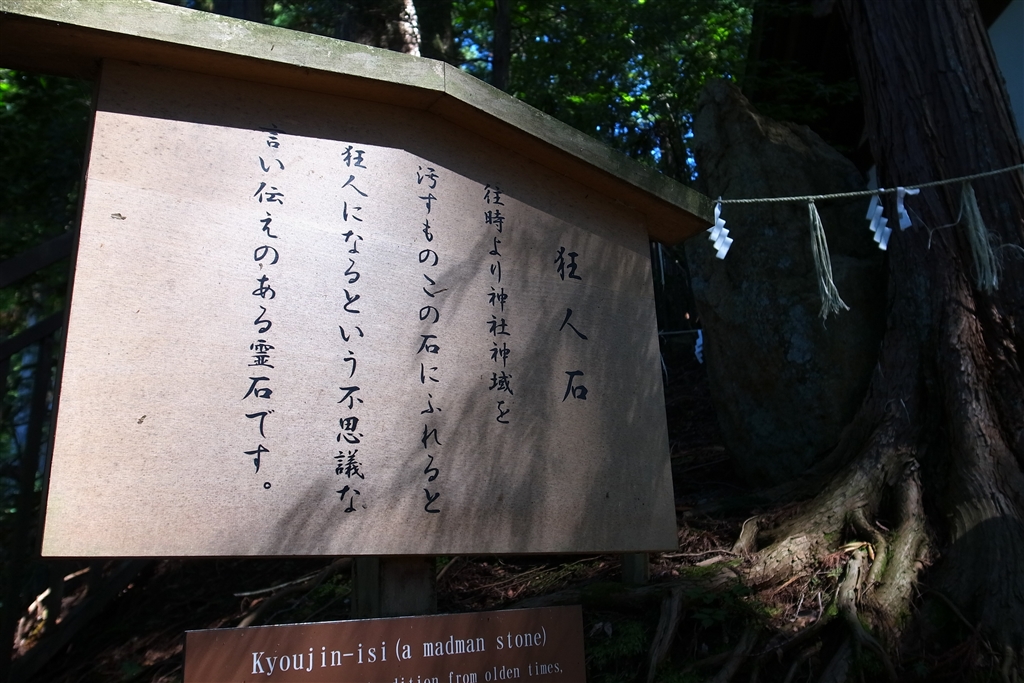 狂人石
往時より神社神域を
汚すものこの石にふれると
狂人になるという不思議な
言い伝えのある霊石です。
Kyoujin-isi(a madman stone)
from olden times,